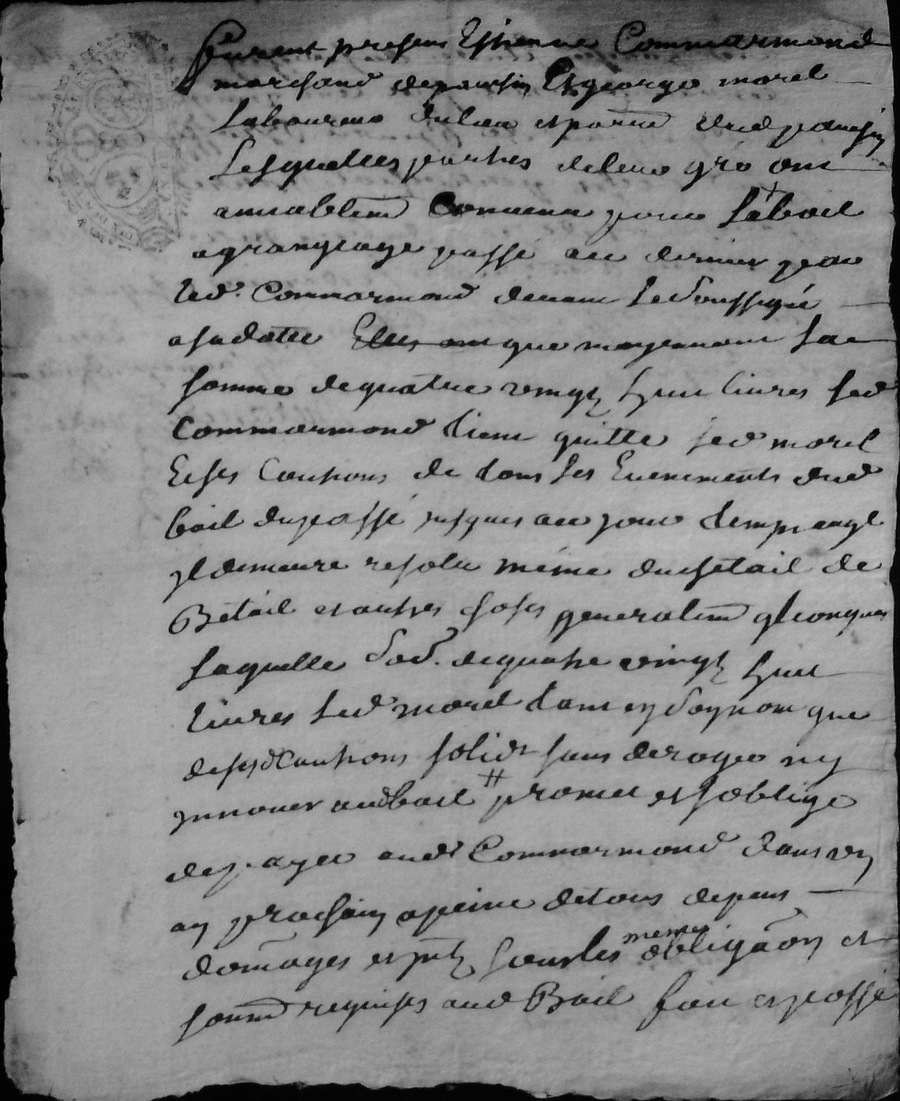 furent presens Estienne Commarmond
marchand depanissin Et george morel
Laboureur dulieu et parr. dud panissin
Lesquelles parties deleur gré ont
amiablem̄ Convenu pour Le bail
agrangeage passé au dernier par
led. Commarmond devant Le Soussigné
asadatte que moyennant La
somme dequatre vingt huit livres led
Commarmond tient quitte led morel
Et ses Cautions de tous Les Evenements dud
bail dupassé jusques au jour
yl demeure resolu même duchetail de
Bétail et autres choses generalem̄ qlconques
Laquelle Sod. dequatre vingt huit
livres Led morel tant en Son nom que
desesd Cautions solidt sans deroger ny
innover audbail ++ promet et soblige
depayer aud Commarmond dans un
an prochain apeine detous depens
domāges et jnts sous les mêmes obligāon et
soum̄ requises aud Bail fait et passé